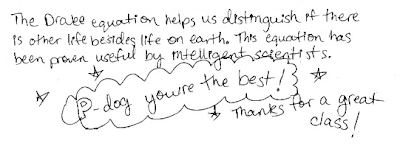 The Drake equation helps us distinguish if there
is other life besides life on earth. This equation has
been proven useful by intelligent scientists.
P-dog you're the best!
Thanks for a great
class!